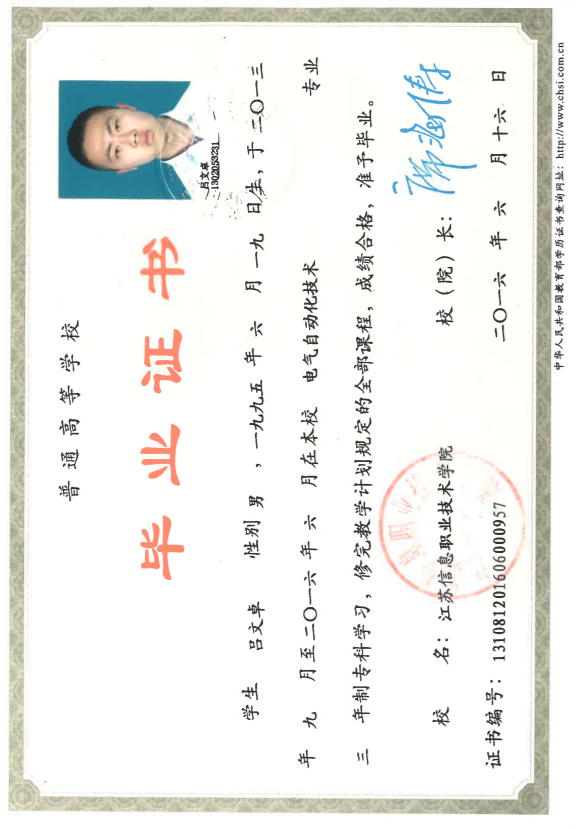 普通高等学校
毕业证书
吕文卓
1302053231
学生 吕文卓 性别 男 ，一九九五 年 六 月 一九 日生，于 二〇一三
年 九 月至 二〇一六 年 六 月在本校 电气自动化技术 专业
三 年制专科学习，修完教学计划规定的全部课程，成绩合格，准予毕业。
校 名：江苏信息职业技术学院 校（院）长：
证书编号：131081201606000957 二〇一六 年 六 月 十六 日
中华人民共和国教育部学历证书查询网址：http://www.chsi.com.cn